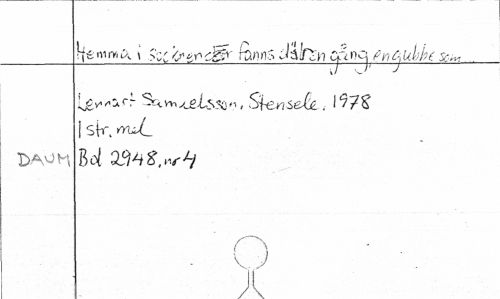 Hemma i socknen där fanns där en gång, en gubbe som
Lennart Samuelsson, Stensele, 1978
1 str, mel
DAUM Bd 2948, nr 4